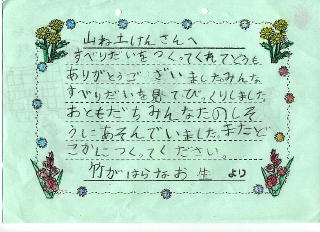 山ね土けんさんへ
すべりだいをつくってくれてどうも
ありがとうございましたみんな
すべりだいを見てびっくりしました。
おともだちみんなたのしそ
うにあそんでいました。またど
こかにつくってください。
竹がはらなお生 より